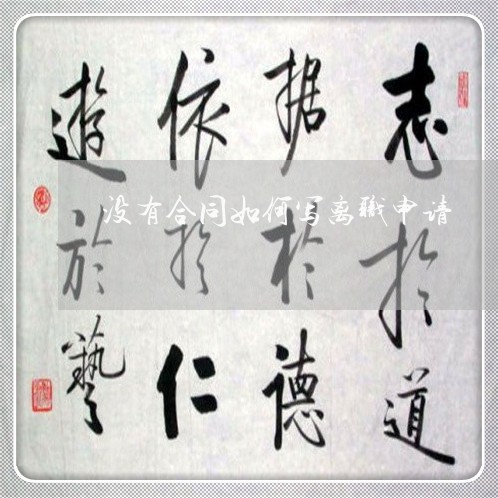 志於道
据於德
依於仁
遊於藝
没有合同如何写离职申请